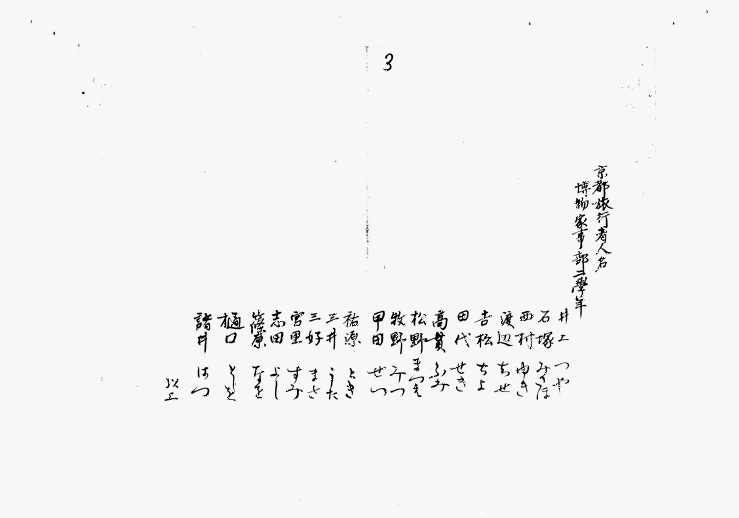 3
京都旅行者人名
博物家事部二學年
井上 つや
石塚 みさほ
西村 ゆき
渡辺 ちせ
吉松 ちよ
田代 せき
高貫 ふみ
松野 まつゑ
牧野 みつ
甲田 せつ
祐源 とき
三井 うた
三好 まさ
宮里 すみ
志田 よし
篠原 なを
樋口 としを
諸井 はつ
以上